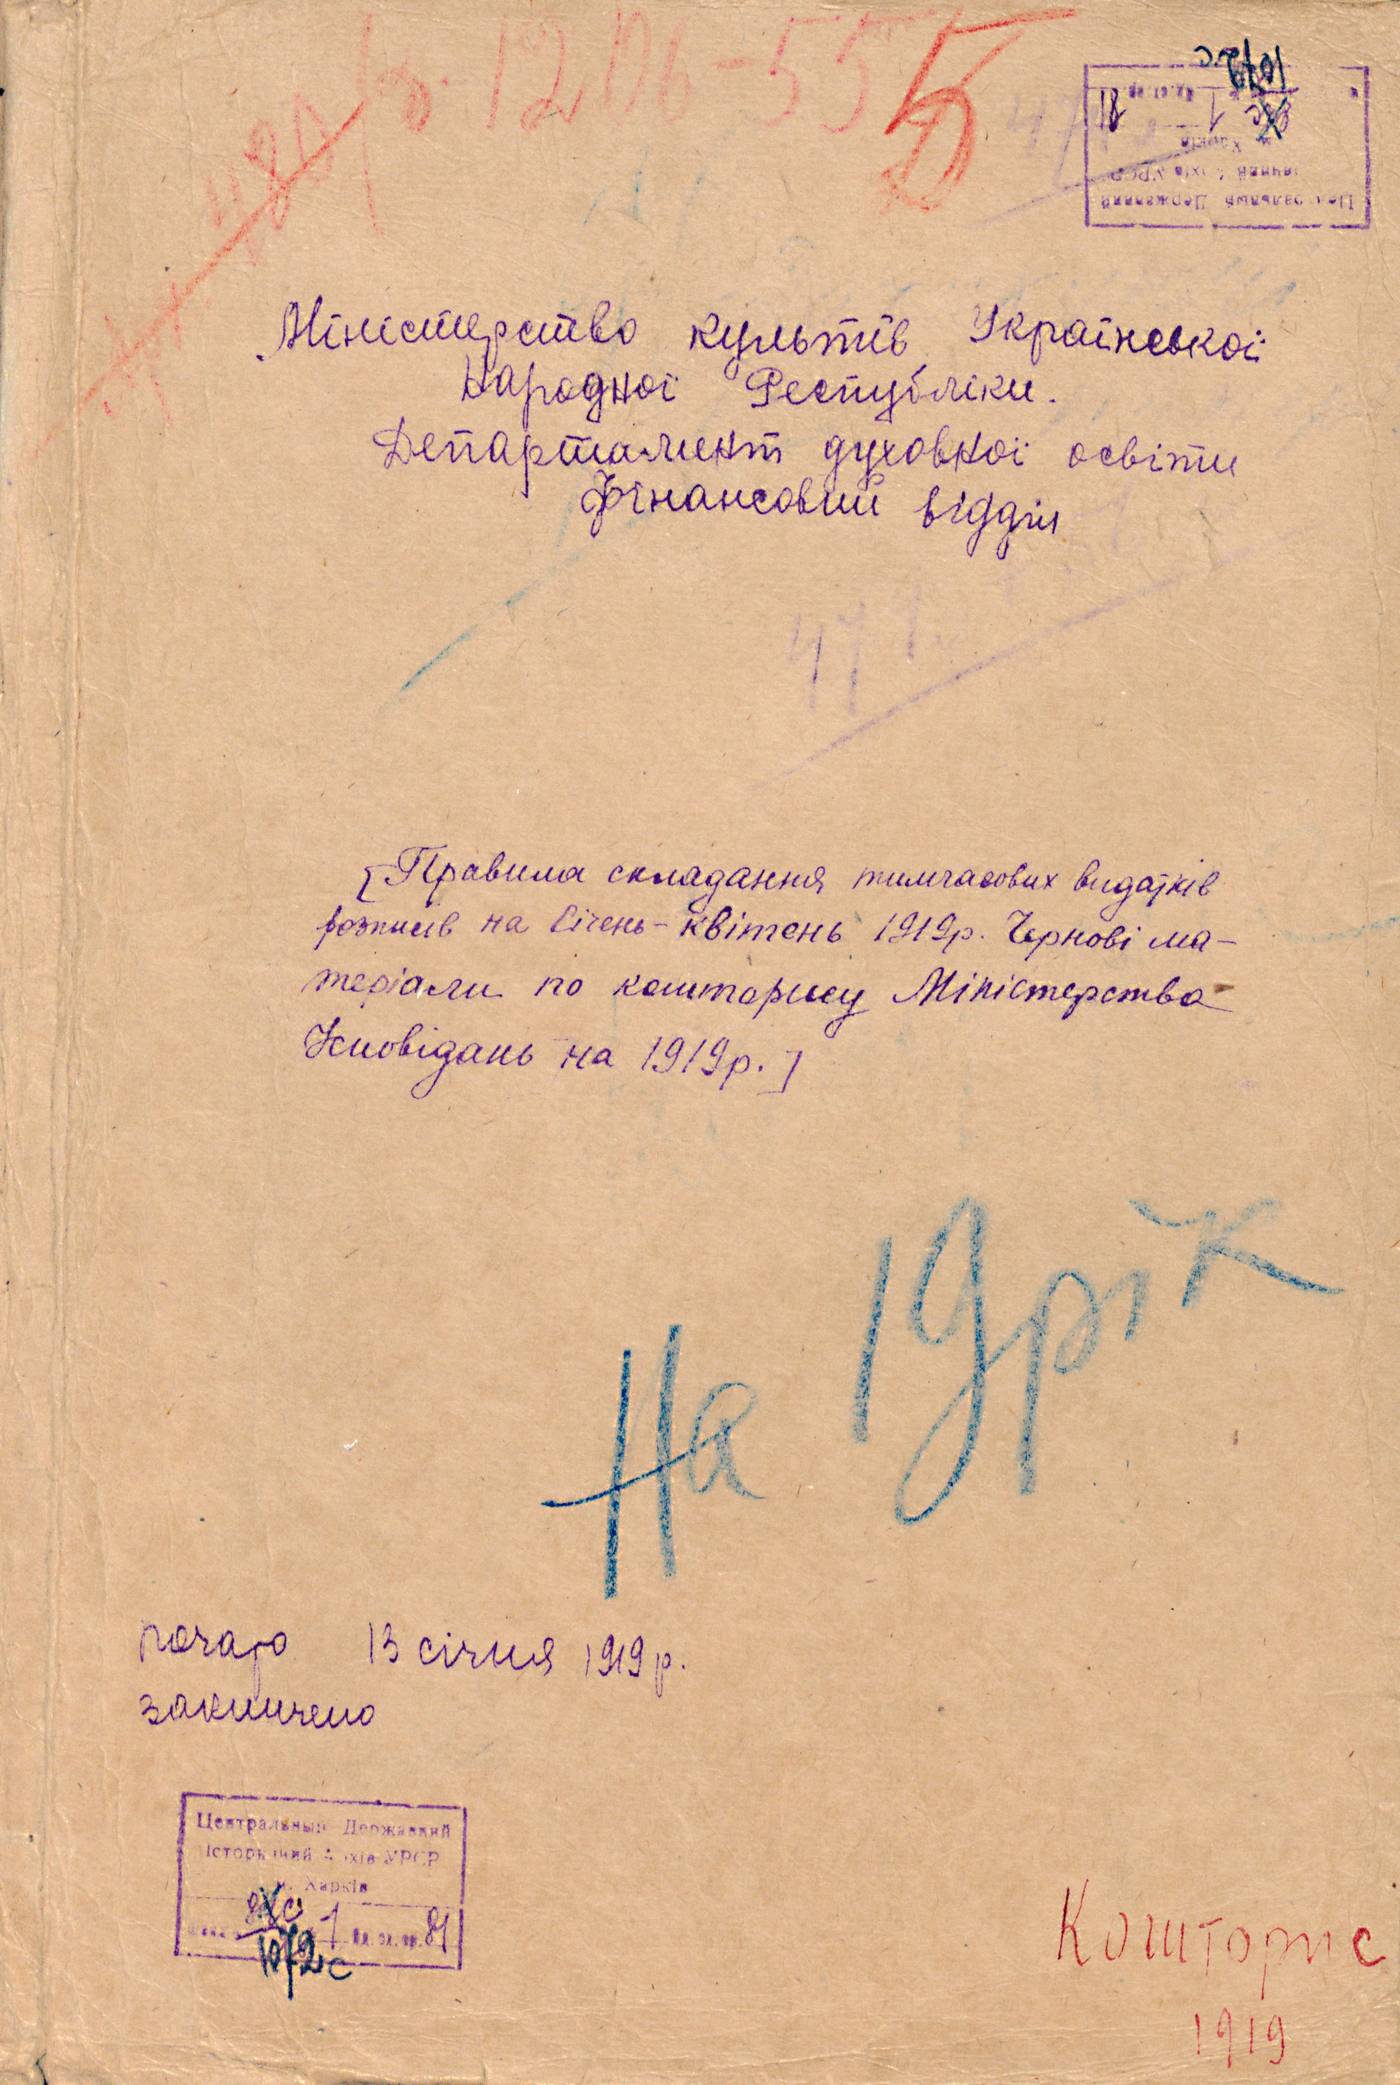 Міністерство культів Української
Народної Республіки.
Департамент духовної освіти
Фінансовий відділ
[Правила складання тимчасових видатків
розписів на Січень-квітень 1919р. Чернові ма-
теріали по кошторису Міністерства
Ісповідань на 1919р.]
На 19 рік
почато 13 січня 1919 р.
закінчено
Центральный Державний
Історичний Архів УРСР
м. Харків
1072с 1 Од. зб. 81
Кошторис
1919